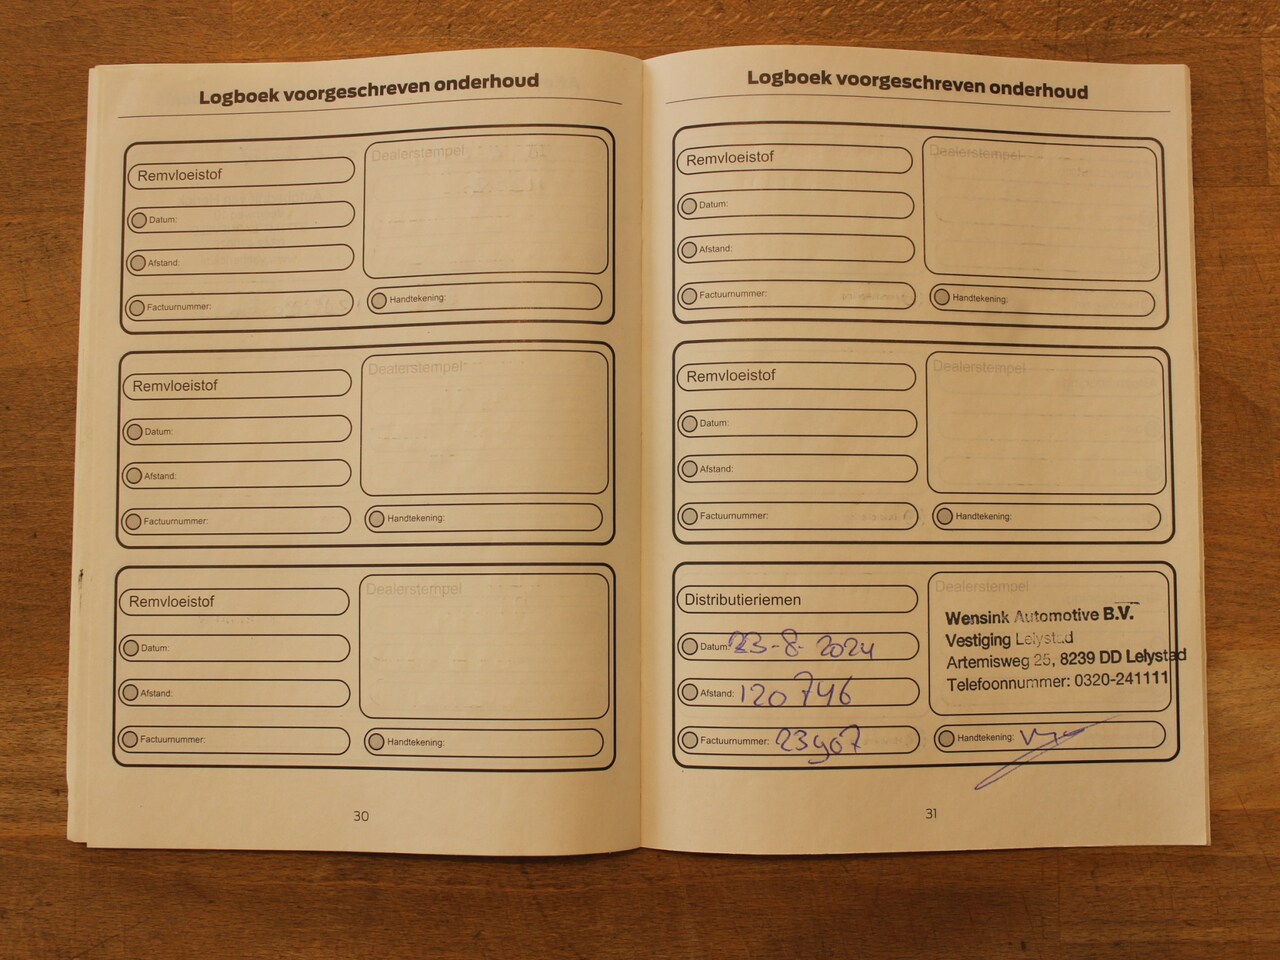 Logboek voorgeschreven onderhoud
Remvloeistof
Dealerstempel
Datum:
Afstand:
Factuurnummer:
Handtekening:
Remvloeistof
Dealerstempel
Datum:
Afstand:
Factuurnummer:
Handtekening:
Remvloeistof
Dealerstempel
Datum:
Afstand:
Factuurnummer:
Handtekening:
30
Logboek voorgeschreven onderhoud
Remvloeistof
Dealerstempel
Datum:
Afstand:
Factuurnummer:
Handtekening:
Remvloeistof
Dealerstempel
Datum:
Afstand:
Factuurnummer:
Handtekening:
Distributieriemen
Datum: 23-8-2024
Afstand: 120746
Factuurnummer: 23907
Dealerstempel
Wensink Automotive B.V.
Vestiging Lelystad
Artemisweg 25, 8239 DD Lelystad
Telefoonnummer: 0320-241111
Handtekening:
31